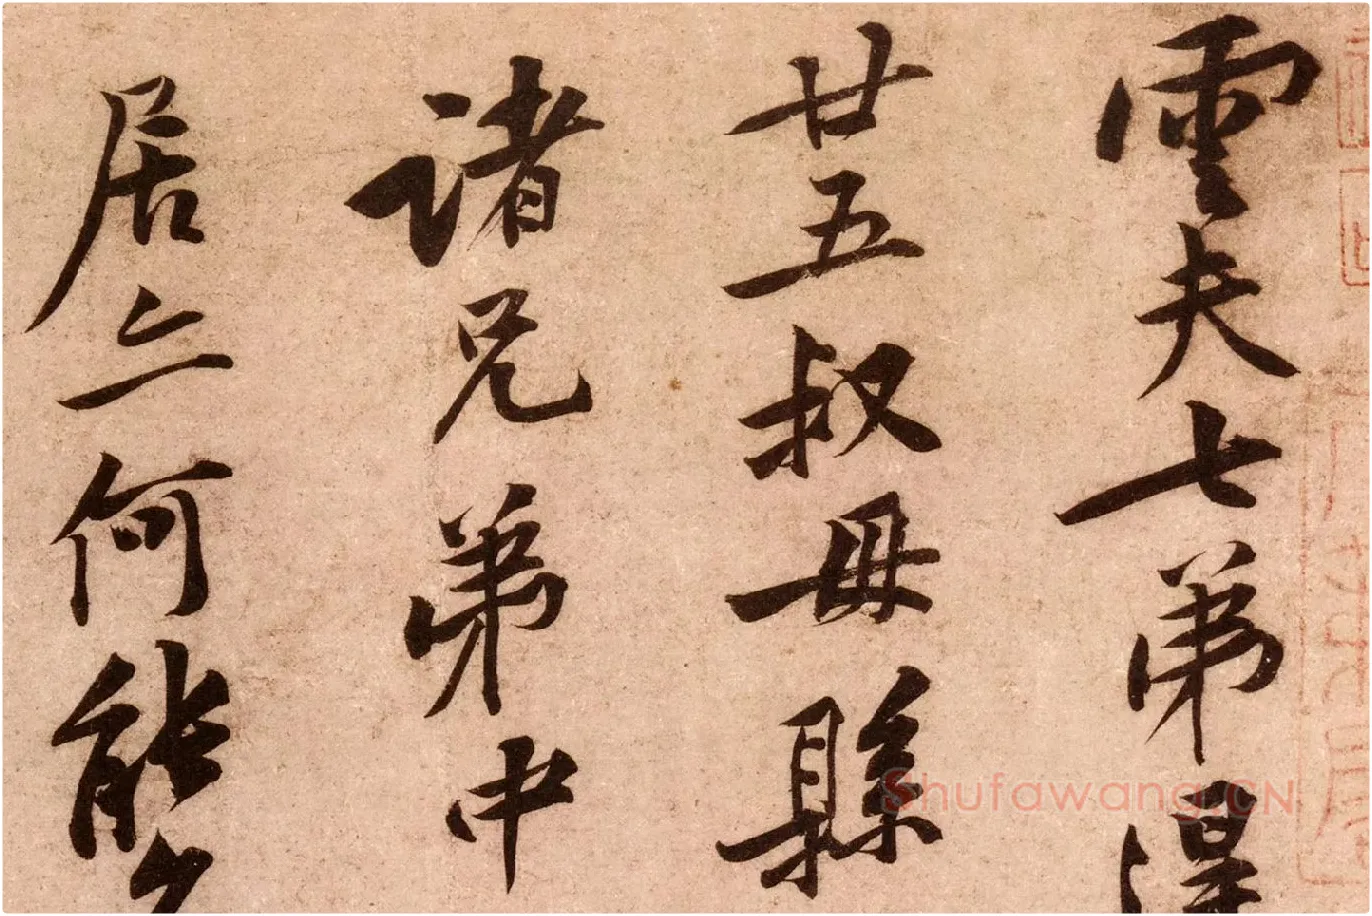 雲夫七弟得
廿五叔母縣
諸兄弟中
居亡何能
Shufawang.CN